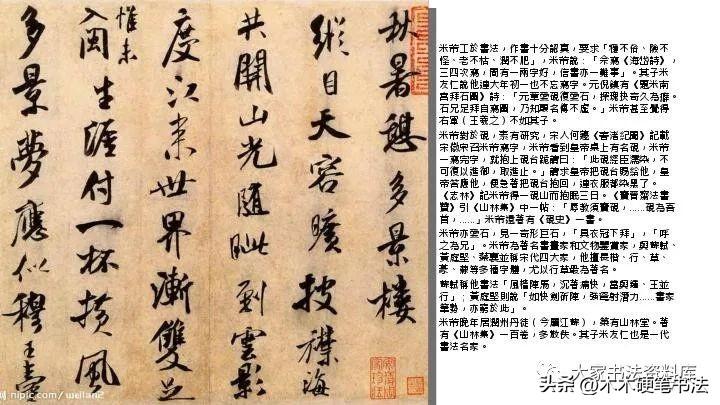 秋暑憩多景樓
縱目天容曠披襟海
共開山光隨眦到雲影
度江來世界漸雙足
惟未
入閩生涯付一杯橫風
多景夢應似穆王臺
米芾工於書法，作書十分認真，要求「穩不俗、險不
怪、老不枯、潤不肥」，米芾說：「余寫《海岱詩》，
三四次寫，間有一兩字好，信書亦一難事」。其子米
友仁說他連大年初一也不忘寫字。元倪鎮有《題米南
宮拜石圖》詩：「元章愛硯復愛石，探瑰抉奇久為癖。
石兄足拜自寫圖，乃知顛名傳不虛。」米芾甚至覺得
右軍（王羲之）不如其子。
米芾對於硯，素有研究，宋人何薳《春渚紀聞》記載
宋徽宗召米芾寫字，米芾看到皇帝桌上有名硯，米芾
一寫完字，就抱上硯台跪請曰：「此硯經臣濡染，不
可復以進御，取進止。」請求皇帝把硯台賜給他，皇
帝答應他，便急著把硯台抱回，連衣服都染黑了。
《志林》記米芾得一硯山而抱眠三日。《寶晉齋法書
贊》引《山林集》中一帖：「辱教須寶硯，……硯為吾
首，……」米芾還著有《硯史》一書。
米芾亦愛石，見一奇形巨石，「具衣冠下拜」，「呼
之為兄」。米芾為著名書畫家和文物鑒賞家，與蘇軾、
黃庭堅、蔡襄並稱宋代四大家，他擅長楷、行、草、
篆、隸等多種字體，尤以行草最為著名。
蘇軾稱他書法「風檣陣馬，沉著痛快，當與鍾、王並
行」；黃庭堅則說「如快劍斫陣，強弩射潛力……書家
筆勢，亦窮於此」。
米芾晚年居潤州丹徒（今屬江蘇），築有山林堂。著
有《山林集》一百卷，多散佚。其子米友仁也是一代
書法名家。
昵图网 nipic.com/wellan2
大家书法资料库
头条@木木硬笔书法